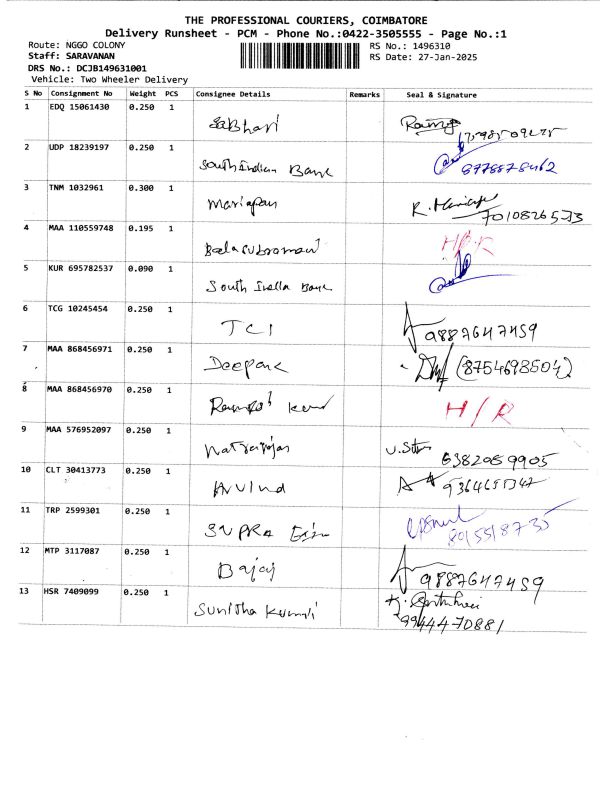 THE PROFESSIONAL COURIERS, COIMBATORE
Delivery Runsheet - PCM - Phone No.:0422-3505555 - Page No.:1
Route: NGGO COLONY RS No.: 1496310
Staff: SARAVANAN RS Date: 27-Jan-2025
DRS No.: DCJB149631001
Vehicle: Two Wheeler Delivery
S No Consignment No Weight PCS Consignee Details Remarks Seal & Signature
1 EDQ 15061430 0.250 1
Sabhari
2 UDP 18239197 0.250 1
South Indian Bank 8778878462
3 TNM 1032961 0.300 1
Mariapan 7010826533
4 MAA 110559748 0.195 1
Balasubramani H/R
5 KUR 695782537 0.090 1
South India Bank
6 TCG 10245454 0.250 1
TCI 9887647459
7 MAA 868456971 0.250 1
Deepank (8754698504)
8 MAA 868456970 0.250 1
H/R
9 MAA 576952097 0.250 1
Natrajan 6382089905
10 CLT 30413773 0.250 1
Arvind
11 TRP 2599301 0.250 1
SUPRA
12 MTP 3117087 0.250 1
Bajaj 9887647459
13 HSR 7409099 0.250 1
Sunitha Kumari
9944470881